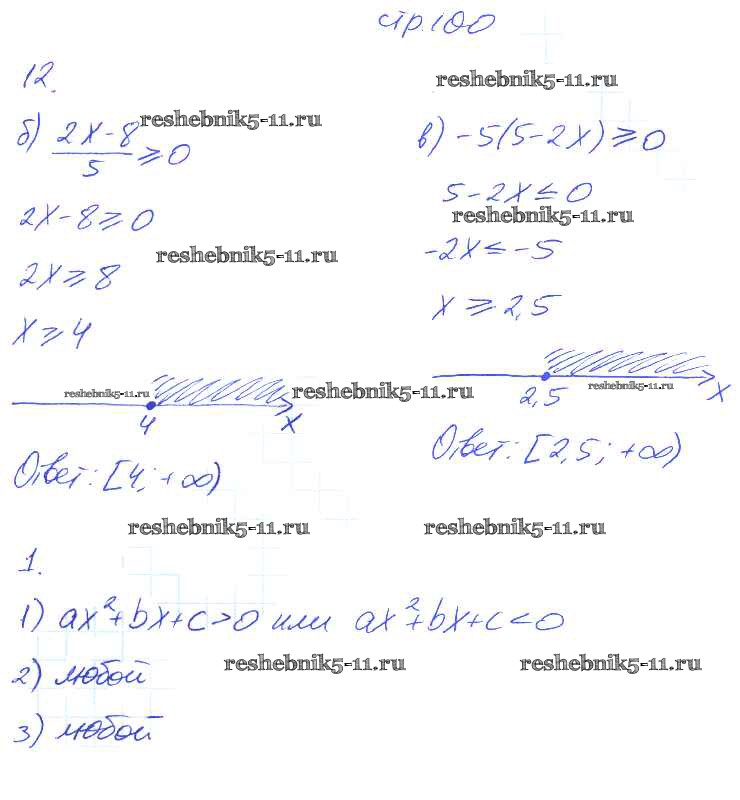 стр.100
12.
reshebnik5-11.ru
б) (2x-8)/5 ≥ 0
reshebnik5-11.ru
2x-8≥0
2x≥8
reshebnik5-11.ru
x≥4
reshebnik5-11.ru
4 x
Ответ: [4; +∞)
в) -5(5-2x)≥0
5-2x≤0
reshebnik5-11.ru
-2x≤-5
x≥2,5
reshebnik5-11.ru
reshebnik5-11.ru
2,5 x
Ответ: [2,5; +∞)
reshebnik5-11.ru reshebnik5-11.ru
1.
1) ax²+bx+c>0 или ax²+bx+c<0
reshebnik5-11.ru reshebnik5-11.ru
2) любой
3) любой